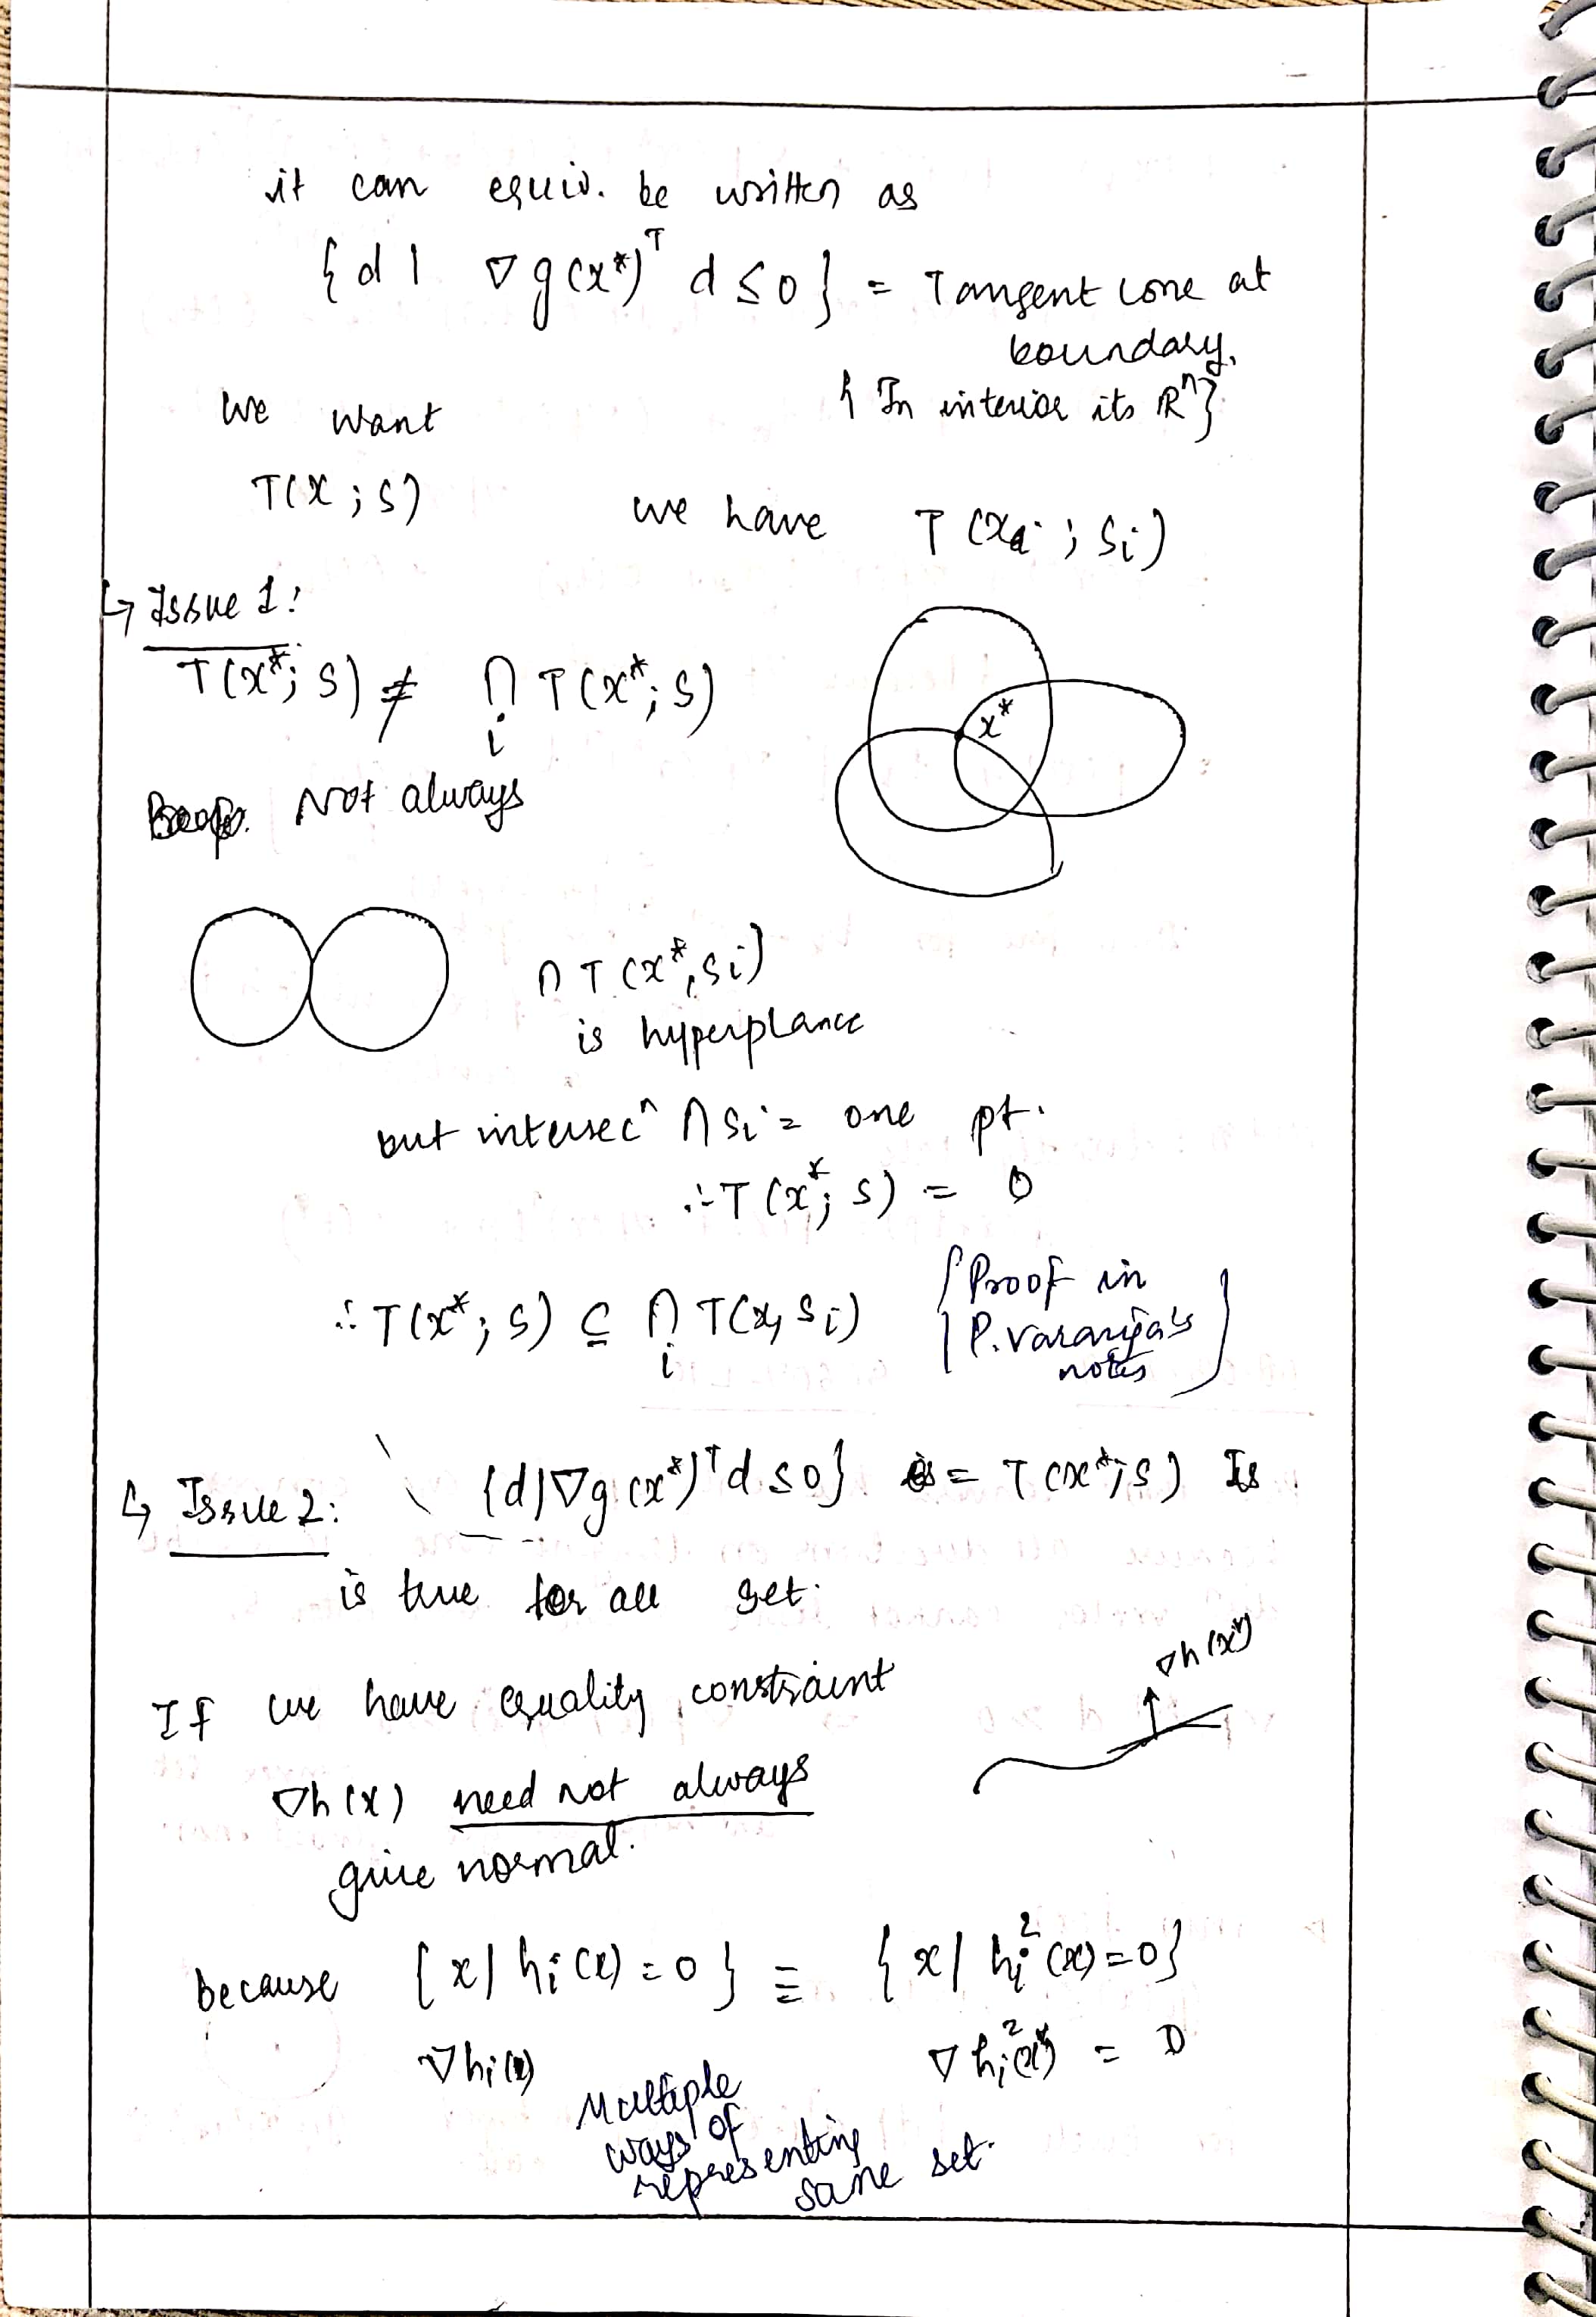 it can equiv. be written as
{d | ∇g(x*)ᵀ d ≤ 0} = Tangent cone at
boundary.
{In interior its ℝⁿ}
We want
T(x ; S)
we have T(x ; Si)
↳ Issue 1:
T(x*; S) ≠ ∩ T(x*; S)
i
x*
Not always
∩ T(x*, Si)
is hyperplance
but intersecⁿ ∩ Si = one pt.
∴ T(x*; S) = 0
∴ T(x*; S) ⊆ ∩ T(x, Si)
i
{Proof in
P. varaiya's
notes}
↳ Issue 2: {d | ∇g(x*)ᵀ d ≤ 0} = T(x*; S) Is
is true for all set.
∇h(x*)
If we have equality constraint
∇h(x) need not always
give normal.
because {x | hi(x) = 0} ≡ {x | hi²(x) = 0}
∇hi(x) ∇hi²(x*) = 0
Multiple
ways of
representing
same set.